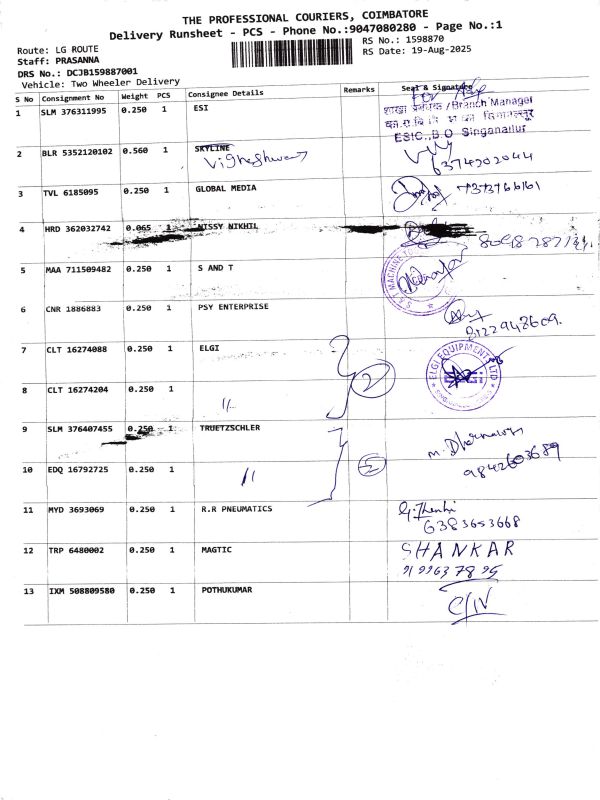 THE PROFESSIONAL COURIERS, COIMBATORE
Delivery Runsheet - PCS - Phone No.:9047080280 - Page No.:1
Route: LG ROUTE
RS No.: 1598870
Staff: PRASANNA
RS Date: 19-Aug-2025
DRS No.: DCJB159887001
Vehicle: Two Wheeler Delivery
S No Consignment No Weight PCS Consignee Details Remarks Seal & Signature
1 SLM 376311995 0.250 1 ESI
/Branch Manager
ESIC.,B.O Singanallur
2 BLR 5352120102 0.560 1 SKYLINE
Vigheshwar
6374202044
3 TVL 6185095 0.250 1 GLOBAL MEDIA
4 HRD 362032742 0.065 1 NISSY NIKHIL
5 MAA 711509482 0.250 1 S AND T
6 CNR 1886883 0.250 1 PSY ENTERPRISE
8122948609.
7 CLT 16274088 0.250 1 ELGI
2
ELGI EQUIPMENTS LTD
ELGi
8 CLT 16274204 0.250 1 11
9 SLM 376407455 0.250 1 TRUETZSCHLER
9842603689
10 EDQ 16792725 0.250 1 11
11 MYD 3693069 0.250 1 R.R PNEUMATICS
6383653668
12 TRP 6480002 0.250 1 MAGTIC SHANKAR
13 IXM 508809580 0.250 1 POTHUKUMAR
C/IV